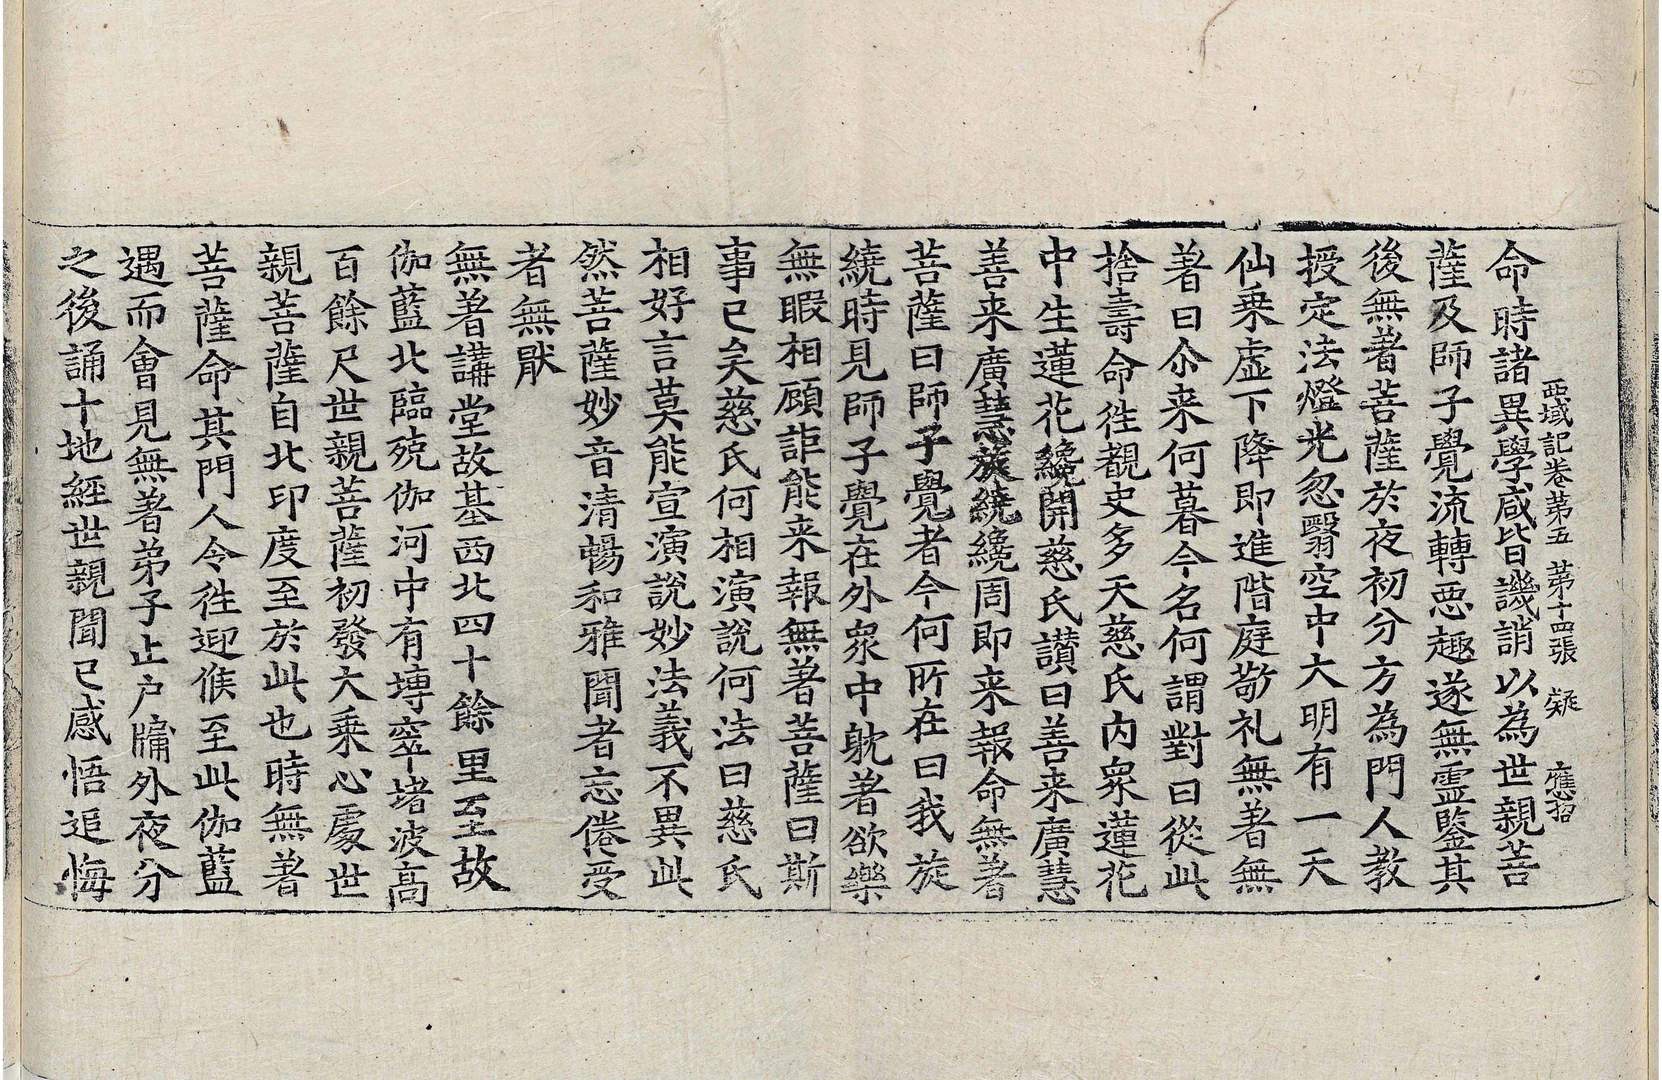 西域記卷第五 第十四張 疑 應招
命時諸異學咸皆譏誚以為世親菩
薩及師子覺流轉惡趣遂無靈鑒其
後無著菩薩於夜初分方為門人教
授定法燈光忽翳空中大明有一天
仙乗虚下降即進階庭敬礼無著無
著曰尒来何暮今名何謂對曰從此
捨壽命徃覩史多天慈氏内衆蓮花
中生蓮花纔開慈氏讃曰善来廣慧
善来廣慧旋繞纔周即来報命無著
菩薩曰師子覺者今何所在曰我旋
繞時見師子覺在外衆中躭著欲樂
無暇相顧詎能来報無著菩薩曰斯
事已矣慈氏何相演說何法曰慈氏
相好言莫能宣演說妙法義不異此
然菩薩妙音清暢和雅聞者忘倦受
者無猒
無著講堂故基西北四十餘里至故
伽藍北臨殑伽河中有塼窣堵波高
百餘尺世親菩薩初發大乗心處世
親菩薩自北印度至於此也時無著
菩薩命其門人令徃迎候至此伽藍
遇而會見無著弟子止户牖外夜分
之後誦十地經世親聞已感悟追悔